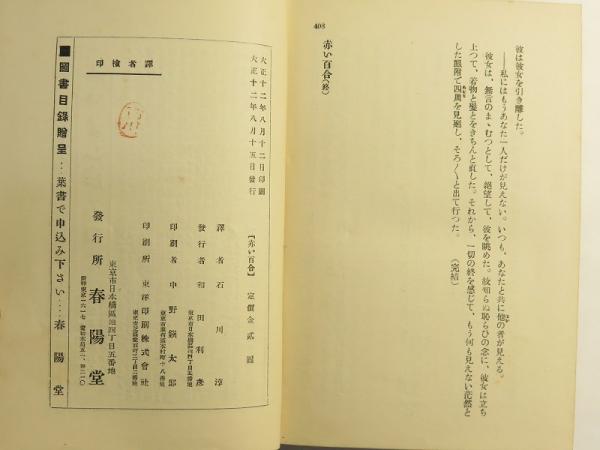 彼は彼女を引き離した。
――私にはもうあなた一人だけが見えない。いつも、あなたと共に他の者が見える。
彼女は、無言のまゝむつとして、絶望して、彼を眺めた。彼知らぬ恥らひの念に、彼女は立ち
上つて、着物と髪とをきちんと直した。それから、一切の終を感じて、もう何も見えない茫然と
した眼附で四周を見廻し、そろ〳〵と出て行つた。
(完結)
赤い百合(終)
408
大正十二年八月十二日印刷
大正十二年八月十五日發行
【赤い百合】 定價金貳圓
譯者檢印
譯者 石川淳
發行者 和田利彥
東京市日本橋區通四丁目五番地
印刷者 中野鍈太郎
印刷所 東洋印刷株式會社
東京市日本橋區通四丁目五番地
發行所 春陽堂
■圖書目錄贈呈…葉書で申込み下さい…春陽堂